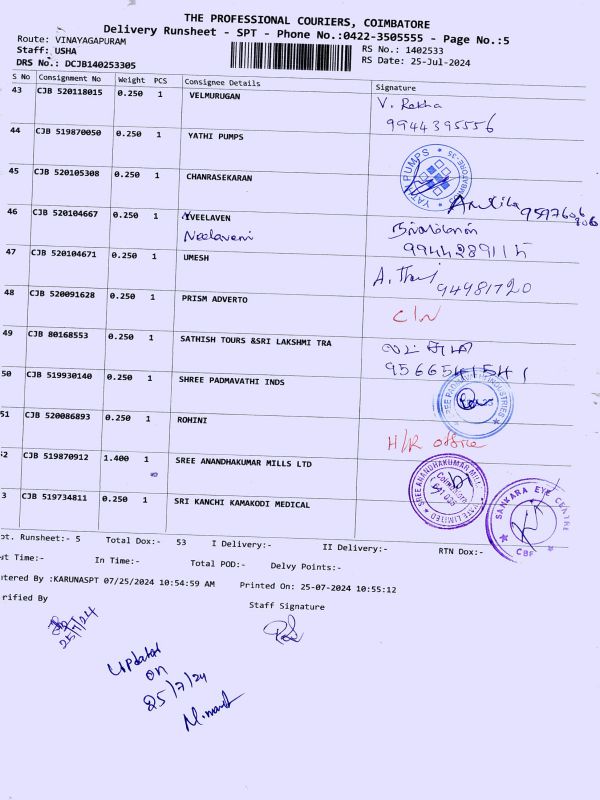 THE PROFESSIONAL COURIERS, COIMBATORE
Delivery Runsheet - SPT - Phone No.:0422-3505555 - Page No.:5
Route: VINAYAGAPURAM
RS No.: 1402533
Staff: USHA
RS Date: 25-Jul-2024
DRS No.: DCJB140253305
S No Consignment No Weight PCS Consignee Details Signature
43 CJB 520118015 0.250 1 VELMURUGAN V. Rekha
9944395556
44 CJB 519870050 0.250 1 YATHI PUMPS
YATHI PUMPS
45 CJB 520105308 0.250 1 CHANRASEKARAN
46 CJB 520104667 0.250 1 YVEELAVEN
Neelaveni
9944289115
47 CJB 520104671 0.250 1 UMESH
48 CJB 520091628 0.250 1 PRISM ADVERTO C/N
49 CJB 80168553 0.250 1 SATHISH TOURS &SRI LAKSHMI TRA
9566541541
50 CJB 519930140 0.250 1 SHREE PADMAVATHI INDS
51 CJB 520086893 0.250 1 ROHINI H/R office
52 CJB 519870912 1.400 1 SREE ANANDHAKUMAR MILLS LTD
SREE ANANDHAKUMAR MILLS
Coimbatore
3 CJB 519734811 0.250 1 SRI KANCHI KAMAKODI MEDICAL
SANKARA EYE CENTRE
CBE
ot. Runsheet:- 5 Total Dox:- 53 I Delivery:- II Delivery:- RTN Dox:-
ut Time:- In Time:- Total POD:- Delvy Points:-
ntered By :KARUNASPT 07/25/2024 10:54:59 AM Printed On: 25-07-2024 10:55:12
rified By Staff Signature
25/7/24
Updated
on
25/7/24